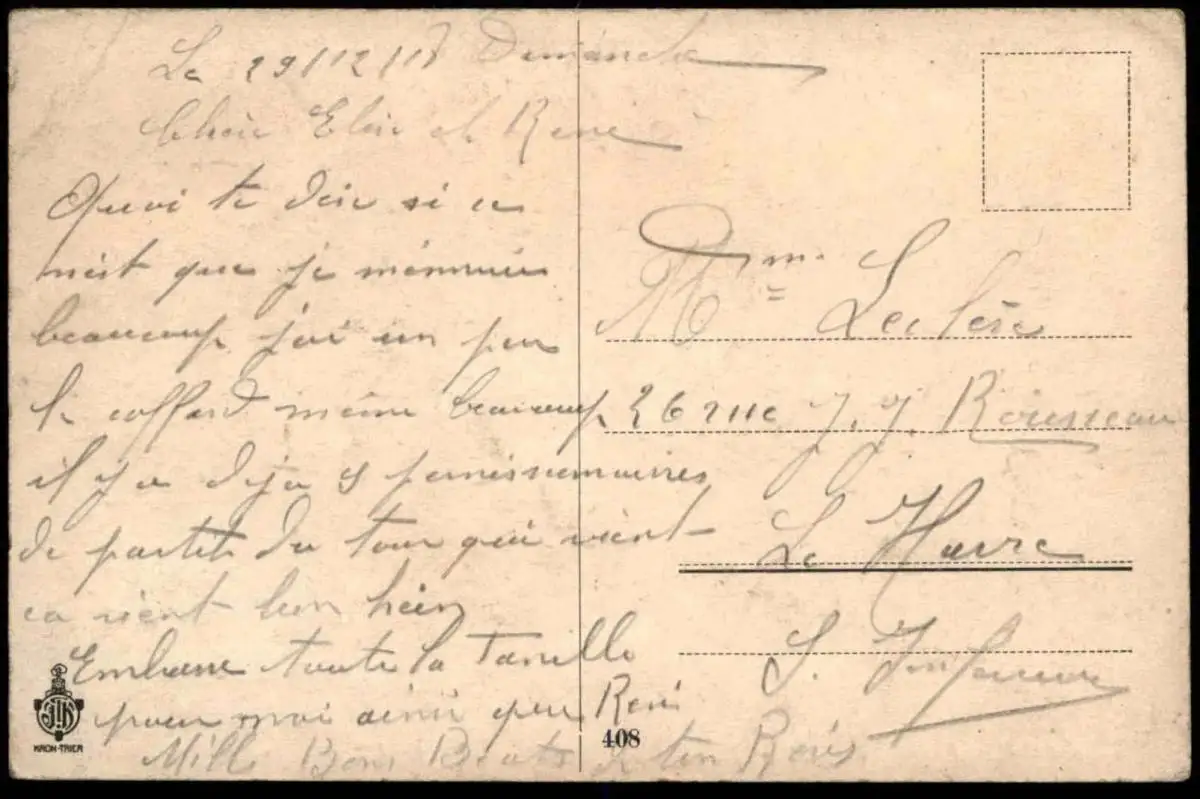 Le 29/12/18 Dimanche
Chère Elise et René
Quoi te dire si ce
n'est que je m'ennuie
beaucoup j'ai un peu
le caffard même beaucoup
il y a deja 9 permissionnaires
de partit du tour qui vient
ca vient bien hein
Embrasse toute la famille
pour moi ainsi que René
Mille Bons de ton René
Mme Leclère
26 rue J. J. Rousseau
Le Havre
S. Inferieure
JHK
KRON-TRIER
408